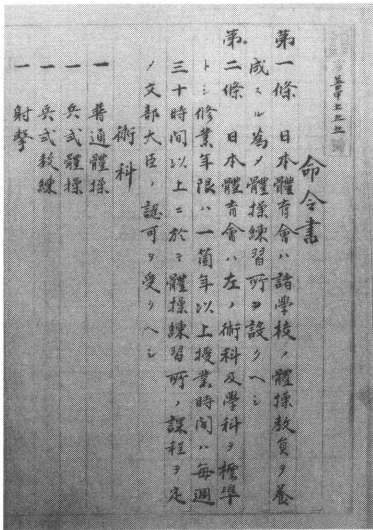 命令書
第一條 日本體育會ハ諸學校ノ體操教員ヲ養
成スル為メ體操練習所ヲ設クヘシ
第二條 日本體育會ハ左ノ術科及學科ヲ標準
トシ修業年限ハ一箇年以上授業時間ハ毎週
三十時間以上ニ於テ體操練習所ノ課程ヲ定
メ文部大臣ノ認可ヲ受クヘシ
術科
一 普通體操
一 兵式體操
一 兵式教練
一 射擊